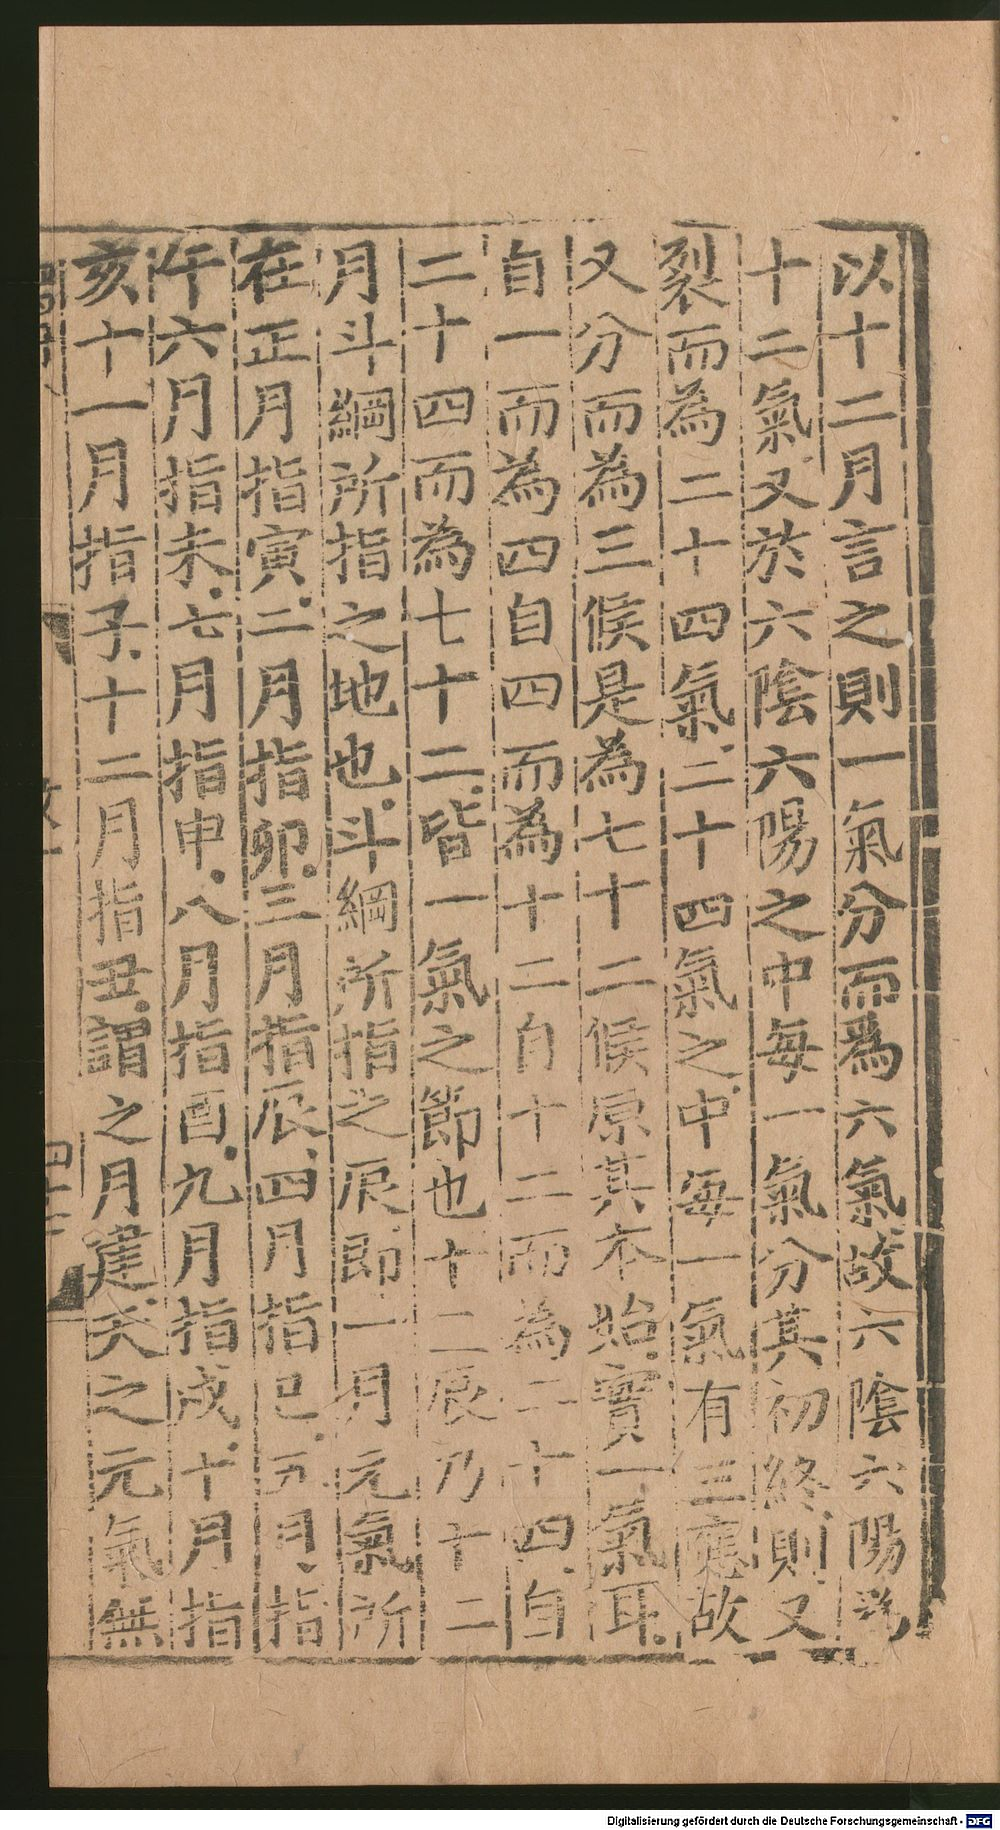 以十二月言之則一氣分而爲六氣故六陰六陽爲
十二氣又於六陰六陽之中每一氣分其初終則又
裂而為二十四氣二十四氣之中每一氣有三應故
又分而為三候是為七十二候原其本始實一氣耳
自一而為四自四而為十二自十二而為二十四自
二十四而為七十二皆一氣之節也十二辰乃十二
月斗綱所指之地也斗綱所指之辰即一月元氣所
在正月指寅二月指卯三月指辰四月指巳五月指
午六月指未七月指申八月指酉九月指戌十月指
亥十一月指子十二月指丑謂之月建天之元氣無
Digitalisierung gefördert durch die Deutsche Forschungsgemeinschaft - DFG